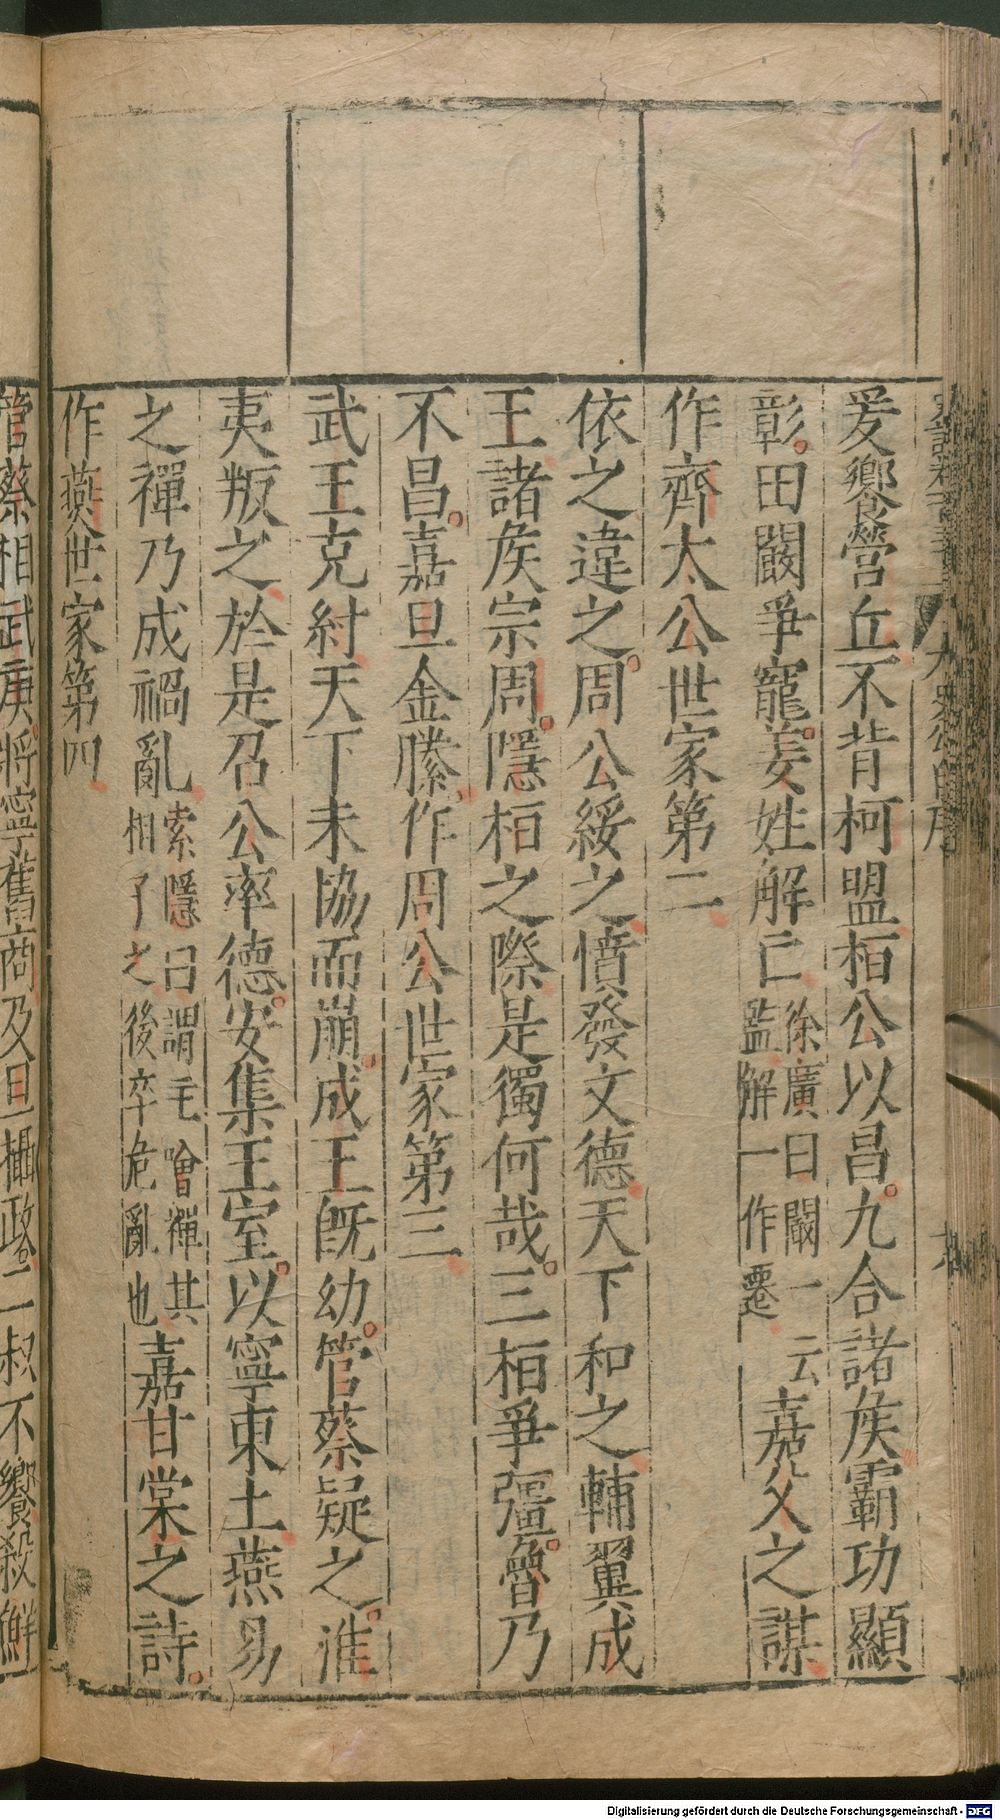 爰饗營丘不背柯盟桓公以昌九合諸矦霸功顯
彰田闞爭寵姜姓解亡徐廣曰闞一云
監解一作遷嘉父之謀
作齊太公世家第二
依之違之周公綏之憤發文德天下和之輔翼成
王諸矦宗周隱桓之際是獨何哉三桓爭彊魯乃
不昌嘉旦金縢作周公世家第三
武王克紂天下未協而崩成王既幼管蔡疑之淮
夷叛之於是召公率德安集王室以寧東土燕易
之禪乃成禍亂索隱曰謂王噲禪其
相子之後卒危亂也嘉甘棠之詩
作燕世家第四
管蔡相武庚將寧舊商及旦攝政二叔不饗殺鮮
Digitalisierung gefördert durch die Deutsche Forschungsgemeinschaft - DFG